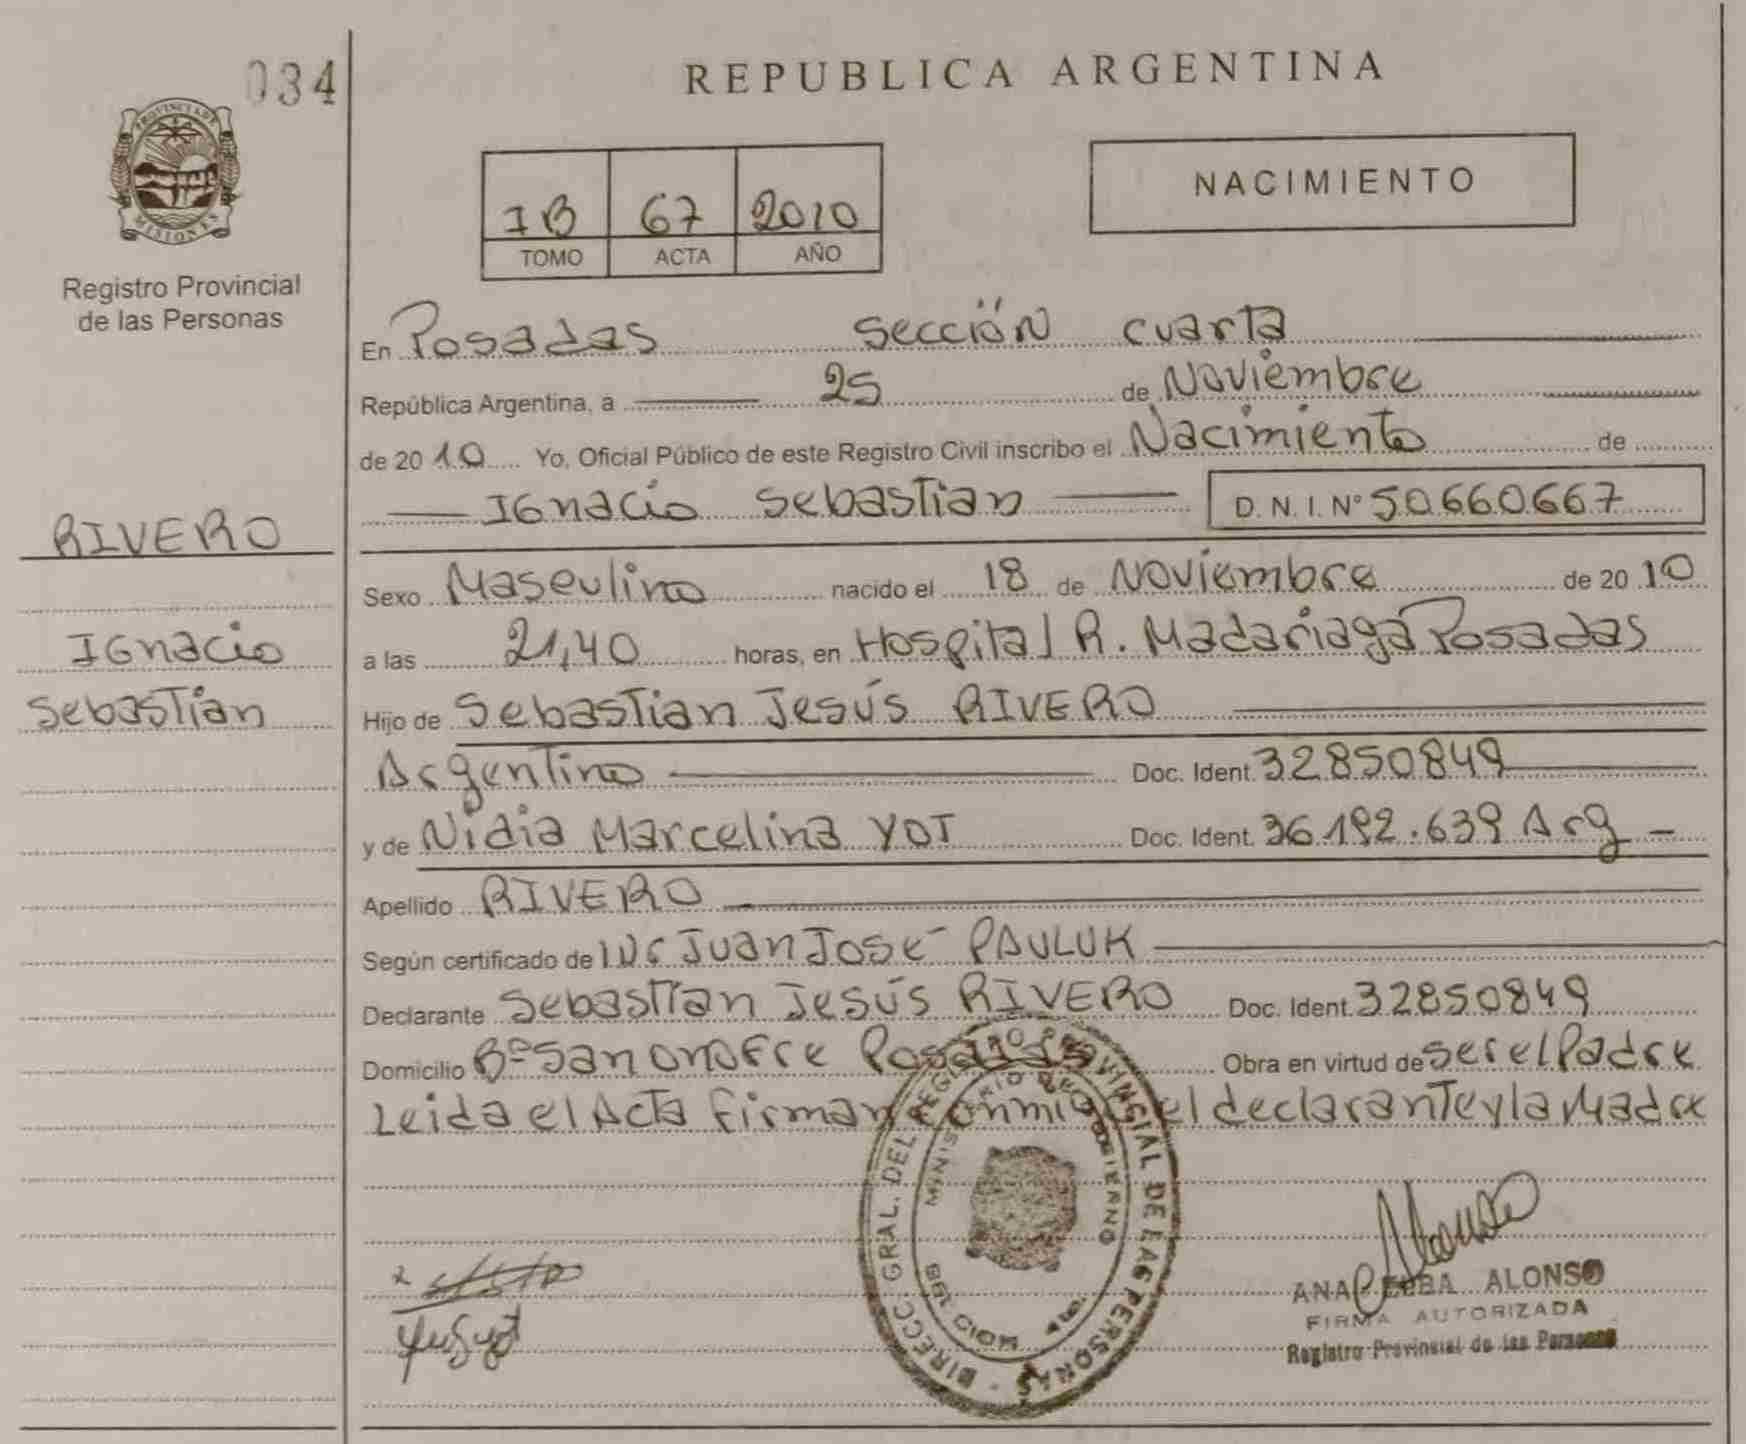 034
REPUBLICA ARGENTINA
PROVINCIA DE
MISIONES
Registro Provincial
de las Personas
IB 67 2010
TOMO ACTA AÑO
NACIMIENTO
En Posadas Sección cuarta
República Argentina, a 25 de Noviembre
de 2010 Yo, Oficial Público de este Registro Civil inscribo el Nacimiento de
Ignacio Sebastian D. N. I. Nº 50660667
RIVERO
Ignacio
Sebastian
Sexo Masculino nacido el 18 de Noviembre de 2010
a las 21,40 horas, en Hospital R. Madariaga Posadas
Hijo de Sebastian Jesús RIVERO
Argentino Doc. Ident. 32850849
y de Nidia Marcelina YOT Doc. Ident. 36.192.639 Arg
Apellido RIVERO
Según certificado de Juan José PAULUK
Declarante Sebastian Jesús RIVERO Doc. Ident. 32850849
Domicilio Bº San Onofre Posadas Obra en virtud de ser el Padre
Leida el Acta firman conmigo el declarante y la Madre
DIRECC. GRAL. DEL REGISTRO PROVINCIAL DE LAS PERSONAS
MINISTERIO DE GOBIERNO
ANA ALONSO
FIRMA AUTORIZADA
Registro Provincial de las Personas